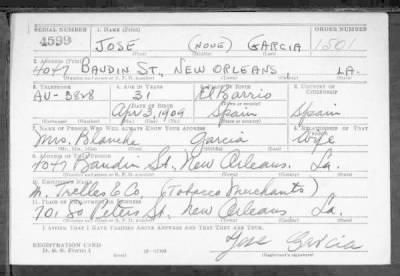 SERIAL NUMBER 1. NAME (Print) ORDER NUMBER
4599 JOSE (NONE) GARCIA 1501
(First) (Middle) (Last)
2. ADDRESS (Print)
4047 BAUDIN ST., NEW ORLEANS, LA.
3. TELEPHONE 4. AGE IN YEARS 5. PLACE OF BIRTH 6. COUNTRY OF CITIZENSHIP
AU-3828 31 El Barrio
DATE OF BIRTH
Apr 3, 1909 Spain Spain
7. NAME OF PERSON WHO WILL ALWAYS KNOW YOUR ADDRESS 8. RELATIONSHIP OF THAT PERSON
Mrs. Blanche Garcia Wife
(Mr., Mrs., Miss) (First) (Middle) (Last)
9. ADDRESS OF THAT PERSON
4047 Baudin St., New Orleans. La.
10. EMPLOYER'S NAME
M. Trelles & Co, (Tobacco Merchants)
11. PLACE OF EMPLOYMENT OR BUSINESS
701 So Peters St, New Orleans La.
I AFFIRM THAT I HAVE VERIFIED ABOVE ANSWERS AND THAT THEY ARE TRUE.
REGISTRATION CARD
D. S. S. Form 1
Jose Garcia
(Registrant's signature)